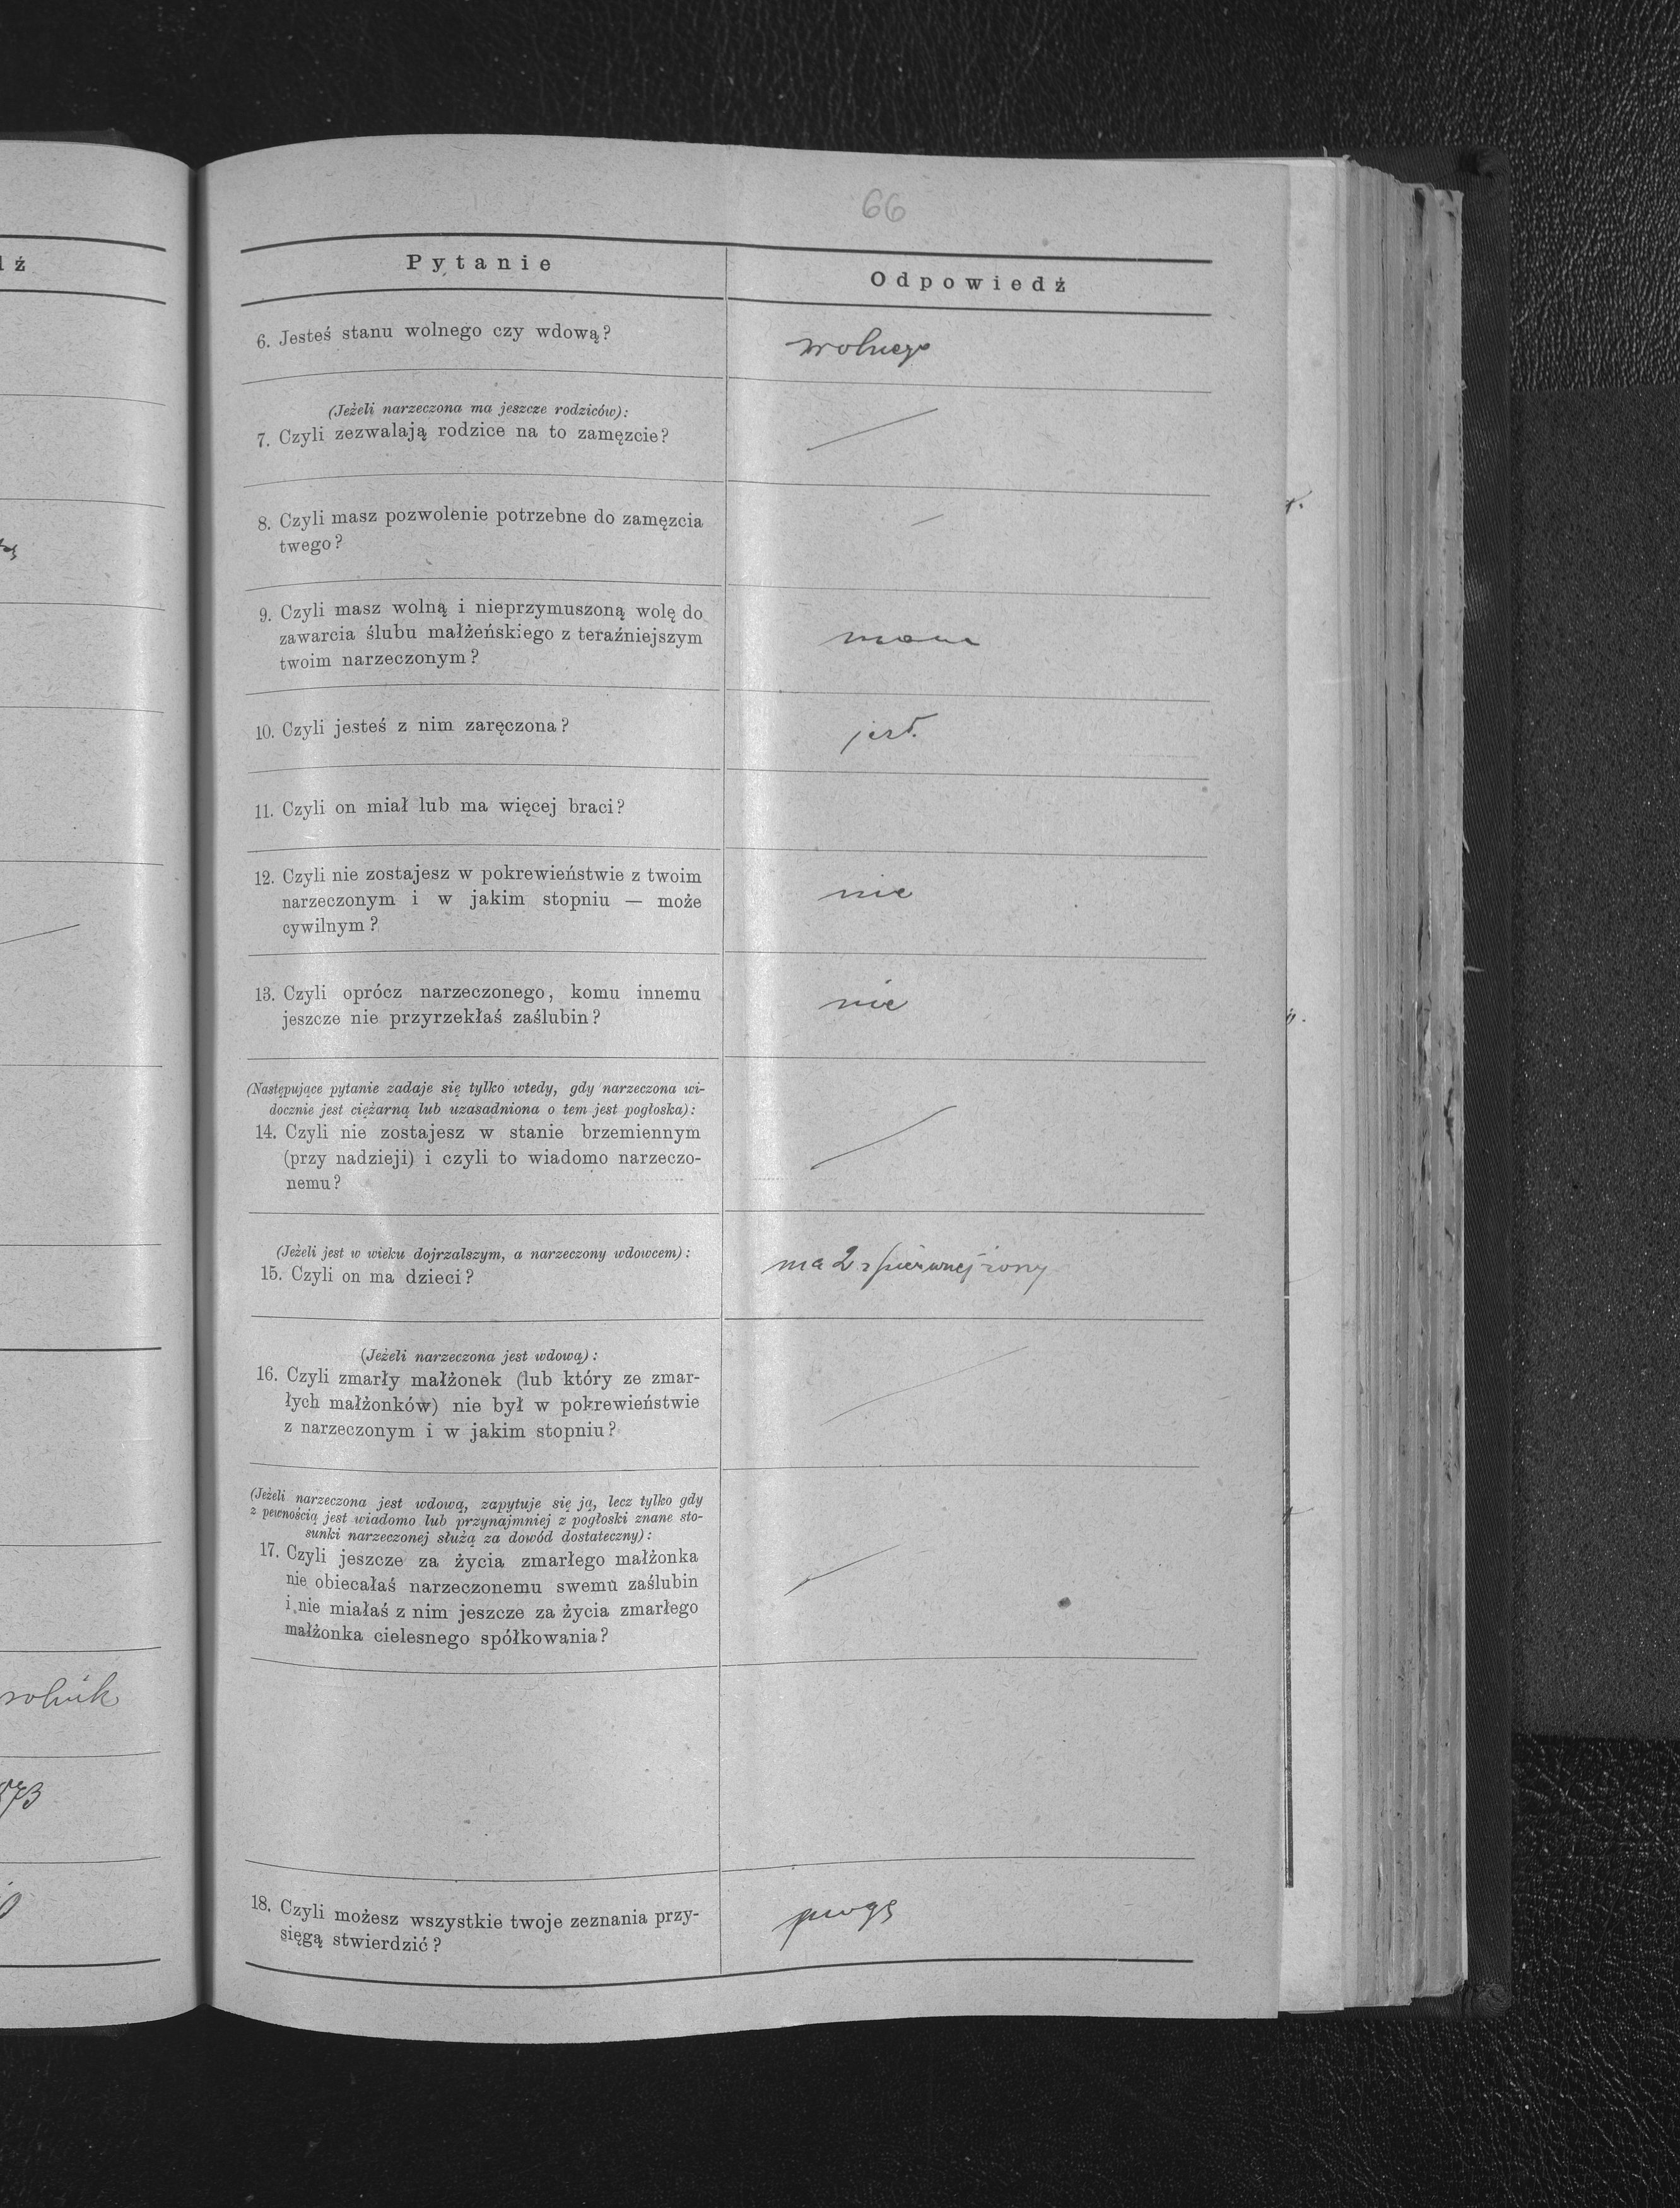 66
dź
Pytanie
Odpowiedź
6. Jesteś stanu wolnego czy wdową?
wolnego
(Jeżeli narzeczona ma jeszcze rodziców):
7. Czyli zezwalają rodzice na to zamęzcie?
8. Czyli masz pozwolenie potrzebne do zamęzcia
twego?
9. Czyli masz wolną i nieprzymuszoną wolę do
zawarcia ślubu małżeńskiego z teraźniejszym
twoim narzeczonym?
mam
10. Czyli jesteś z nim zaręczona?
jest.
11. Czyli on miał lub ma więcej braci?
12. Czyli nie zostajesz w pokrewieństwie z twoim
narzeczonym i w jakim stopniu — może
cywilnym?
nie
13. Czyli oprócz narzeczonego, komu innemu
jeszcze nie przyrzekłaś zaślubin?
nie
(Następujące pytanie zadaje się tylko wtedy, gdy narzeczona wi-
docznie jest ciężarną lub uzasadniona o tem jest pogłoska):
14. Czyli nie zostajesz w stanie brzemiennym
(przy nadzieji) i czyli to wiadomo narzeczo-
nemu?
(Jeżeli jest w wieku dojrzalszym, a narzeczony wdowcem):
15. Czyli on ma dzieci?
ma 2 z pierwszej żony
(Jeżeli narzeczona jest wdową):
16. Czyli zmarły małżonek (lub który ze zmar-
łych małżonków) nie był w pokrewieństwie
z narzeczonym i w jakim stopniu?
(Jeżeli narzeczona jest wdową, zapytuje się ją, lecz tylko gdy
z pewnością jest wiadomo lub przynajmniej z pogłoski znane sto-
sunki narzeczonej służą za dowód dostateczny):
17. Czyli jeszcze za życia zmarłego małżonka
nie obiecałaś narzeczonemu swemu zaślubin
i nie miałaś z nim jeszcze za życia zmarłego
małżonka cielesnego spółkowania?
rolnik
873
18. Czyli możesz wszystkie twoje zeznania przy-
sięgą stwierdzić?